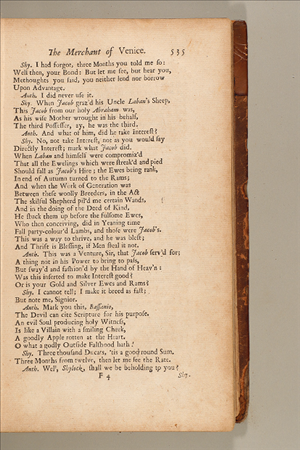 The Merchant of Venice. 535
Shy. I had forgot, three Months you told me so:
Well then, your Bond: But let me see, but hear you,
Methoughts you said, you neither lend nor borrow
Upon Advantage.
Anth. I did never use it.
Shy. When Jacob graz'd his Uncle Laban's Sheep,
This Jacob from our holy Abraham was,
As his wise Mother wrought in his behalf,
The third Possessor, ay, he was the third.
Anth. And what of him, did he take Interest?
Shy. No, not take Interest, not as you would say
Directly Interest; mark what Jacob did.
When Laban and himself were compromis'd
That all the Ewelings which were streak'd and pied
Should fall as Jacob's Hire; the Ewes being rank,
In end of Autumn turned to the Rams;
And when the Work of Generation was
Between these woolly Breeders, in the Act
The skilful Shepherd pil'd me certain Wands,
And in the doing of the Deed of Kind,
He stuck them up before the fulsome Ewes,
Who then conceiving, did in Yeaning time
Fall party-colour'd Lambs, and those were Jacob's.
This was a way to thrive, and he was blest;
And Thrift is Blessing, if Men steal it not.
Anth. This was a Venture, Sir, that Jacob serv'd for;
A thing not in his Power to bring to pass,
But sway'd and fashion'd by the Hand of Heav'n:
Was this inserted to make Interest good?
Or is your Gold and Silver Ewes and Rams?
Shy. I cannot tell; I make it breed as fast;
But note me, Signior.
Anth. Mark you this, Bassanio,
The Devil can cite Scripture for his purpose.
An evil Soul producing holy Witness,
Is like a Villain with a smiling Cheek,
A goodly Apple rotten at the Heart.
O what a godly Outside Falshood hath!
Shy. Three thousand Ducats, 'tis a good round Sum.
Three Months from twelve, then let me see the Rate.
Anth. Well, Shylock, shall we be beholding to you?
F 4 Shy.